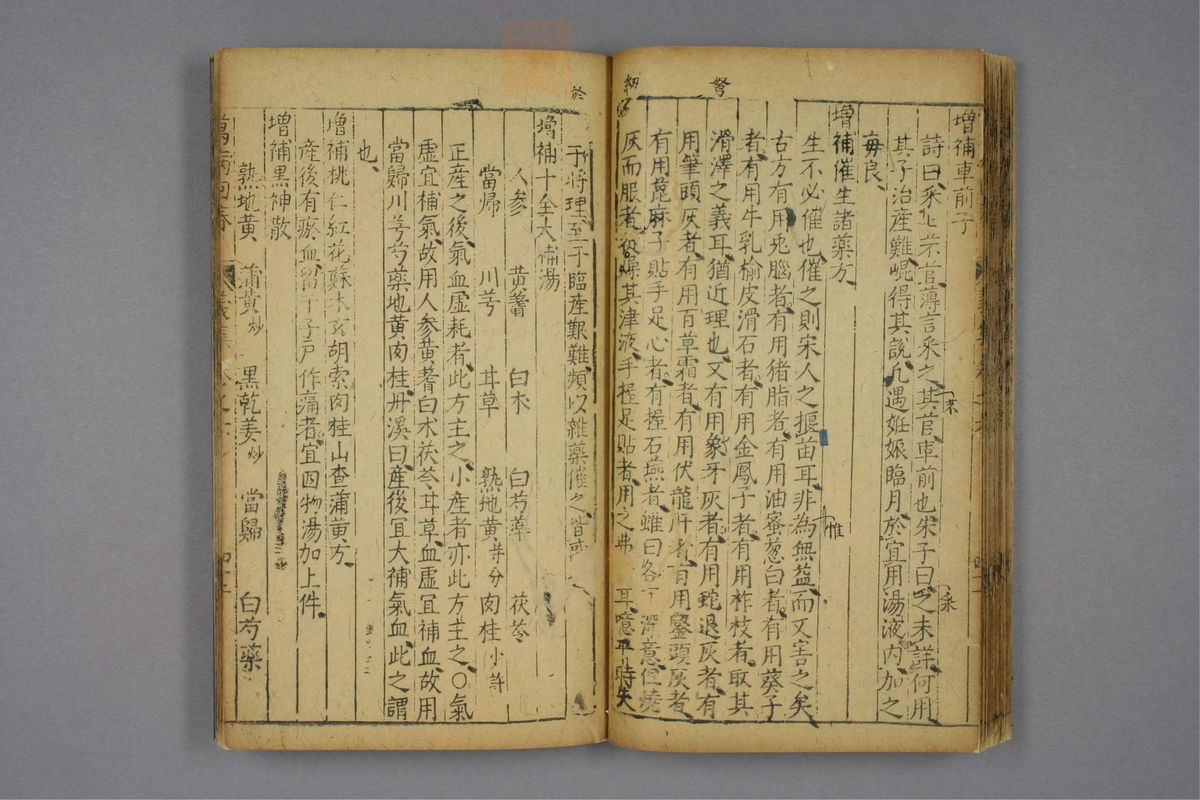 增補車前子
詩曰采采芣苢薄言采之其苢車前也朱子曰采之未詳何用
其子治產難崐得其說凡遇姙娠臨月於宜用湯液內加之
毋良
增補催生諸藥方
生不必催也催之則宋人之揠苗耳非為無益而又害之矣
惟
古方有用兎腦者有用猪脂者有用油蜜葱白者有用葵子
者有用牛乳榆皮滑石者有用金鳳子者有用柞枝者取其
滑澤之義耳猶近理也又有用象牙灰者有用蛇退灰者有
用筆頭灰者有用百草霜者有用伏龍肝者有用鑿頭灰者
弩
有用蓖麻子貼手足心者有握石燕者雖曰各 深意但燒
灰而服者 燥其津液手握足貼者用之弗 耳噫平時失
於
于將理至于臨產艱難頻以雜藥催之皆
增補十全大補湯
人參 黃耆 白朮 白芍藥 茯苓
當歸 川芎 甘草 熟地黃等分肉桂小許
正產之後氣血虛耗者此方主之小產者亦此方主之〇氣
虛宜補氣故用人參黃耆白朮茯苓甘草血虛宜補血故用
當歸川芎芍藥地黃肉桂丹溪曰產後宜大補氣血此之謂
也
增補桃仁紅花蘇木玄胡索肉桂山查蒲黃方
產後有瘀血留于子戶作痛者宜四物湯加上件
增補黑神散
熟地黃 蒲黃炒 黑乾姜炒 當歸 白芍藥
萬病回春